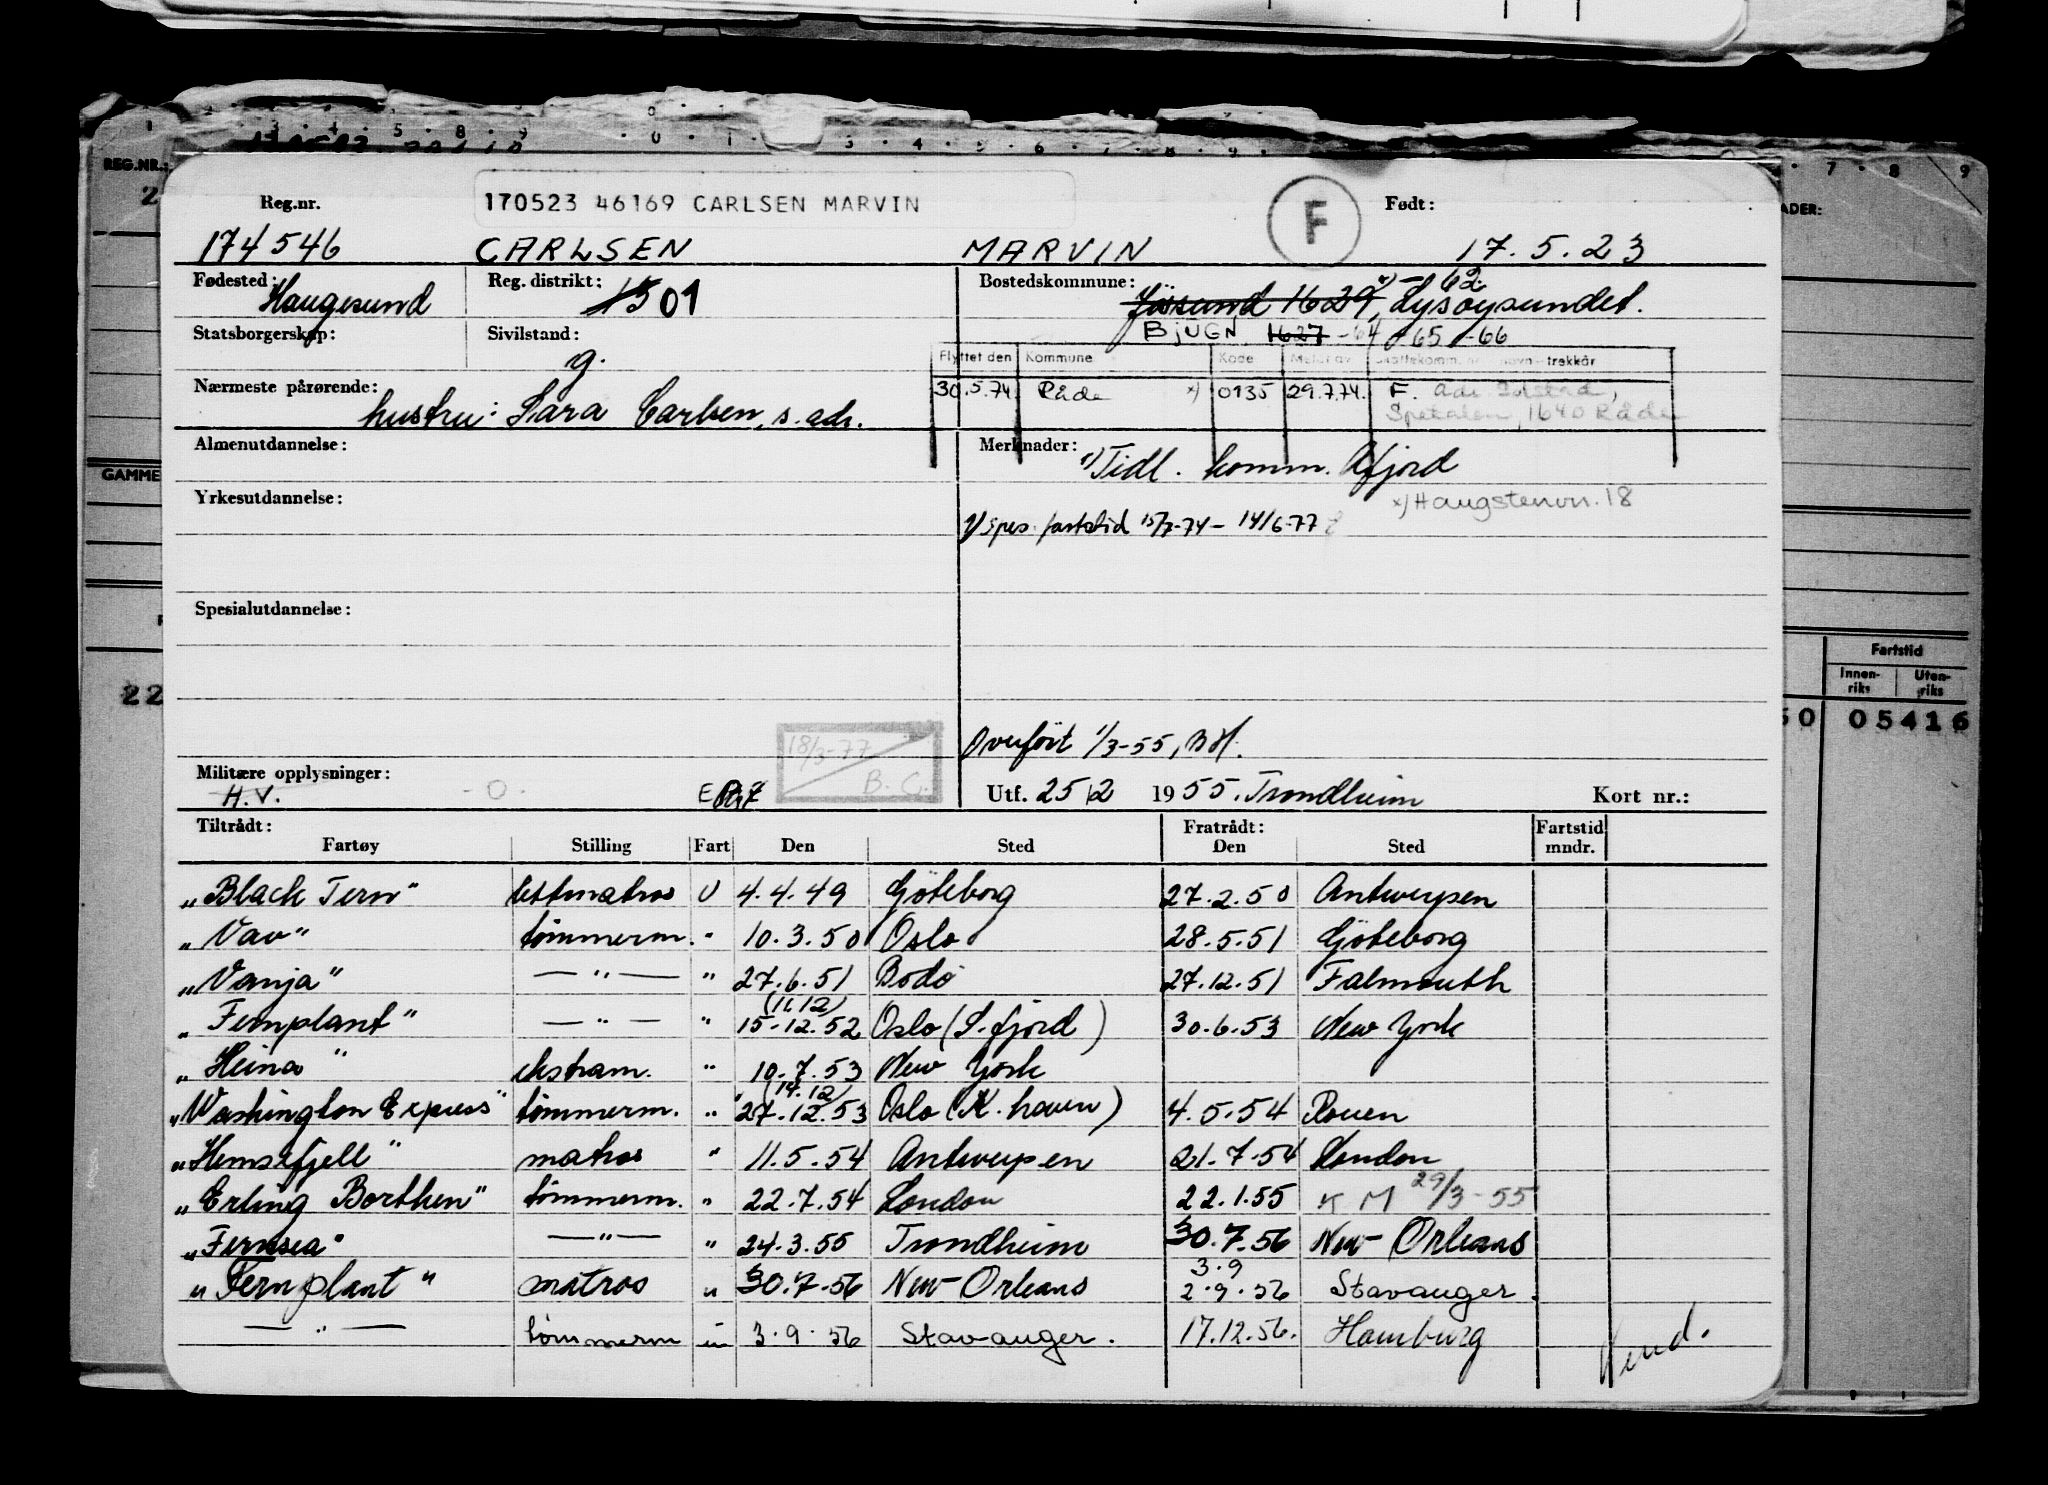 REG.NR.:
Reg.nr.
170523 46169 CARLSEN MARVIN
F
Født:
174546 CARLSEN MARVIN 17.5.23
Fødested: Haugesund
Reg. distrikt: 1501
Bostedskommune: Jøssund 1629, Lysøysundet.
-62
BJUGN 1627 -64 -65 -66
Statsborgerskap:
Sivilstand: g.
Flyttet den Kommune Kode Meldt av trekkår
30.5.74 Råde x) 0135 29.7.74. F.
Spetalen, 1640 Råde
Nærmeste pårørende: hustru: Lara Carlsen, s. adr.
Almenutdannelse:
Merknader: Tidl. komm. Åfjord
x) Haugstenvn. 18
Yrkesutdannelse:
Spes. fartstid 15/7-74 - 14/6-77
Spesialutdannelse:
Overført 1/3-55, BH.
18/3-77
B.G.
Militære opplysninger:
H.V. -0.
Utf. 25/2 1955. Trondheim Kort nr.:
Tiltrådt: Fratrådt: Fartstid
Fartøy Stilling Fart Den Sted Den Sted mndr.
"Black Tern" lettmatros U 4.4.49 Göteborg 27.2.50 Antwerpen
"Vav" tømmerm. " 10.3.50 Oslo 28.5.51 Göteborg
"Vanja" — " — " 27.6.51 Bodø 27.12.51 Falmouth
(11.12)
"Fernplant" — " — " 15.12.52 Oslo (S.fjord) 30.6.53 New York
"Heina" ekstram. " 10.7.53 New York
(14.12)
"Washington Express" tømmerm. " 27.12.53 Oslo (K.haven) 4.5.54 Rouen
"Hemsefjell" matros " 11.5.54 Antwerpen 21.7.54 London
"Erling Borthen" tømmerm. " 22.7.54 London 22.1.55 KM 29/3-55
"Fernsea" — " — " 24.3.55 Trondheim 30.7.56 New-Orleans
3.9
"Fernplant" matros " 30.7.56 New-Orleans 2.9.56 Stavanger.
— " — tømmerm " 3.9.56 Stavanger. 17.12.56. Hamburg
Vend.
GAMME
22
Fartstid
Innen-riks
Uten-riks
50 05416